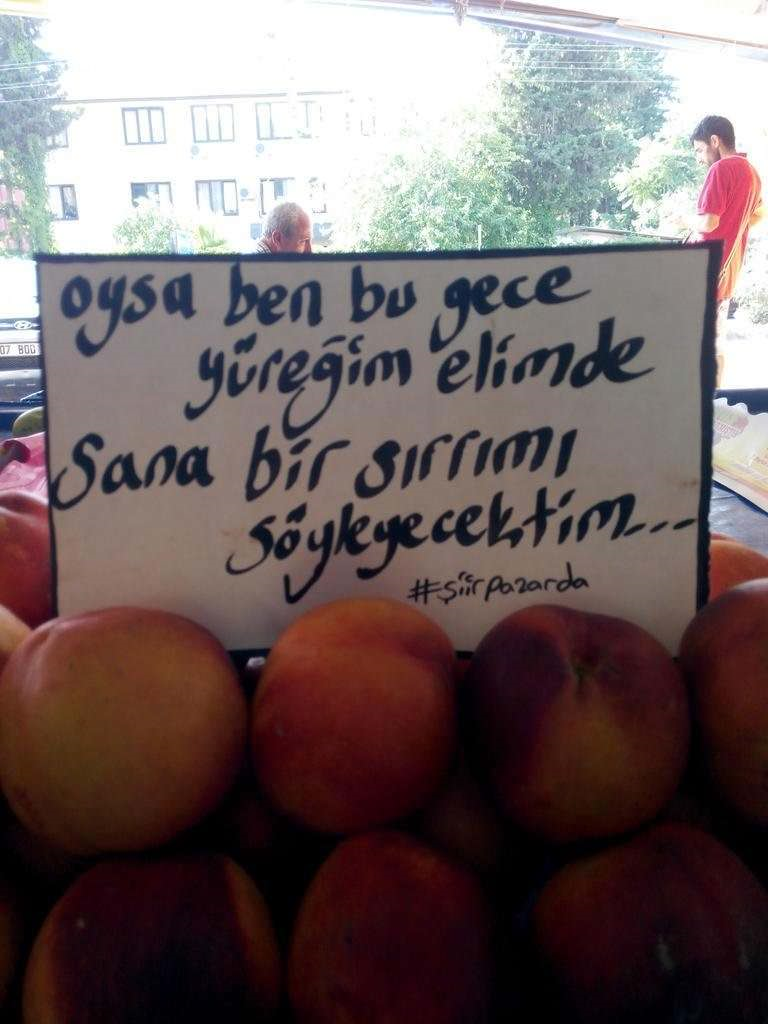 oysa ben bu gece
yüreğim elimde
Sana bir sırrımı
söyleyecektim...
#şiirpazarda
07 BOD